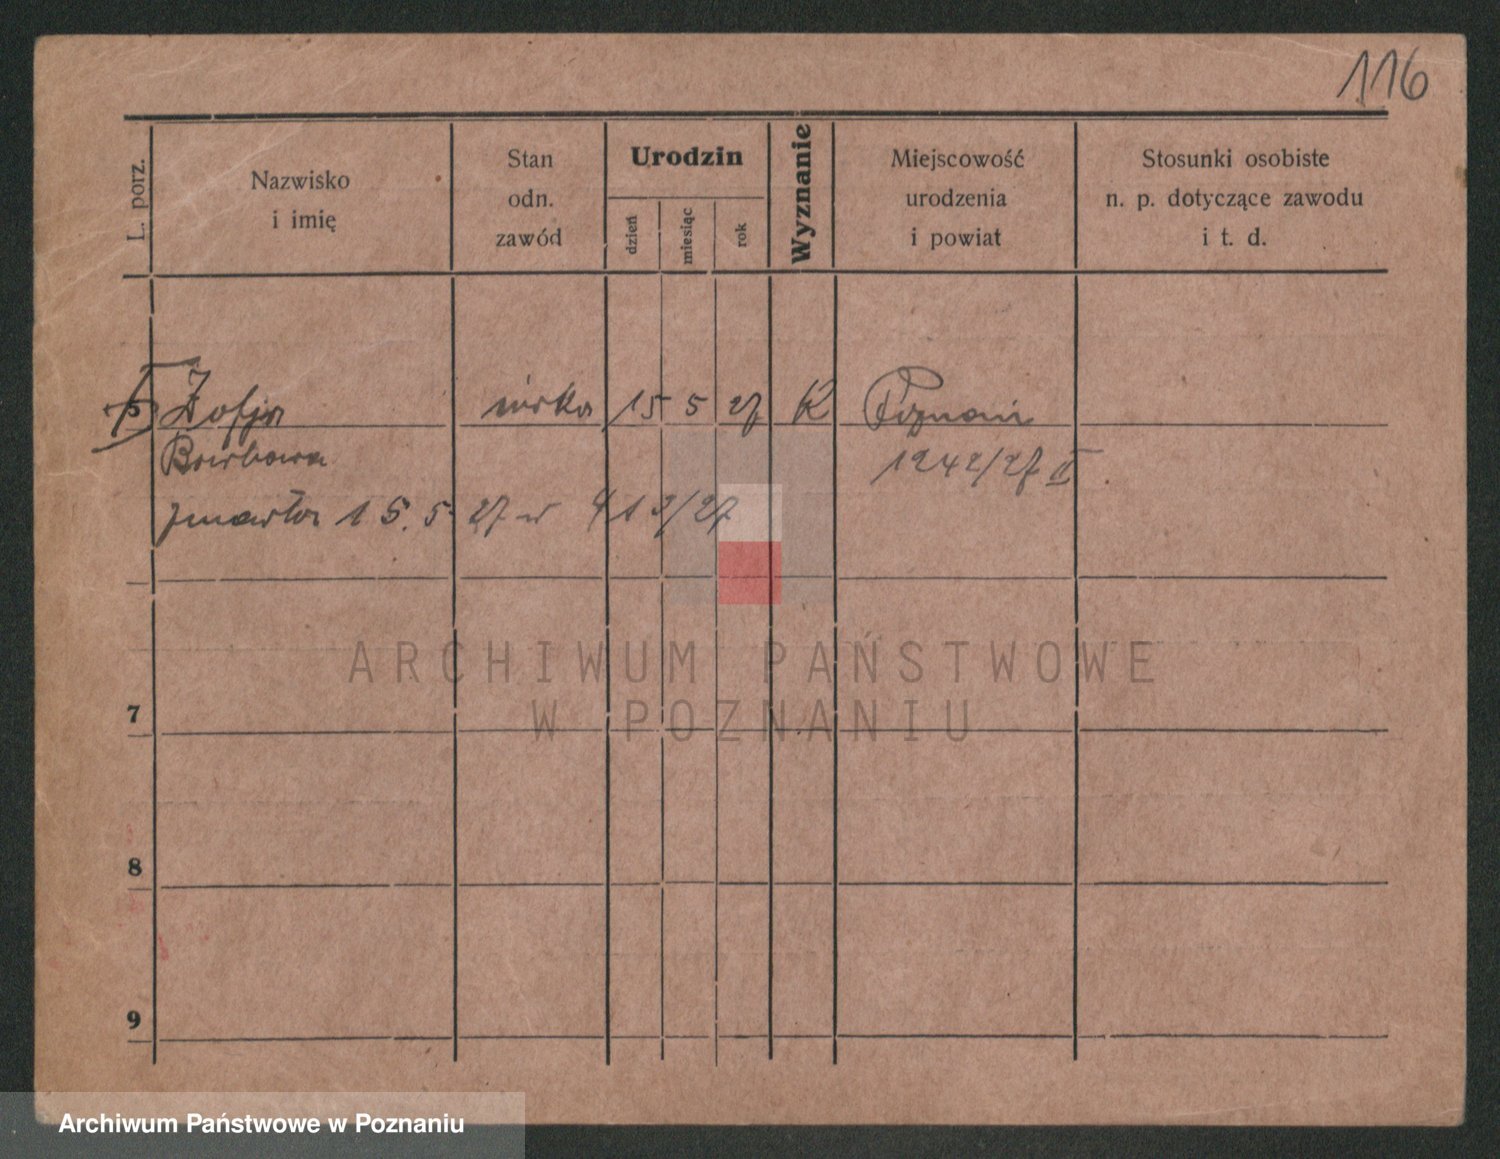 116
L. porz.
Nazwisko
i imię
Stan
odn.
zawód
Urodzin
dzień
miesiąc
rok
Wyznanie
Miejscowość
urodzenia
i powiat
Stosunki osobiste
n. p. dotyczące zawodu
i t. d.
5 Zofja córka 15 5 27 K Poznań
Barbara 1242/27 II
zmarła 15. 5. 27 413/27
ARCHIWUM PAŃSTWOWE
W POZNANIU
7
8
9
Archiwum Państwowe w Poznaniu